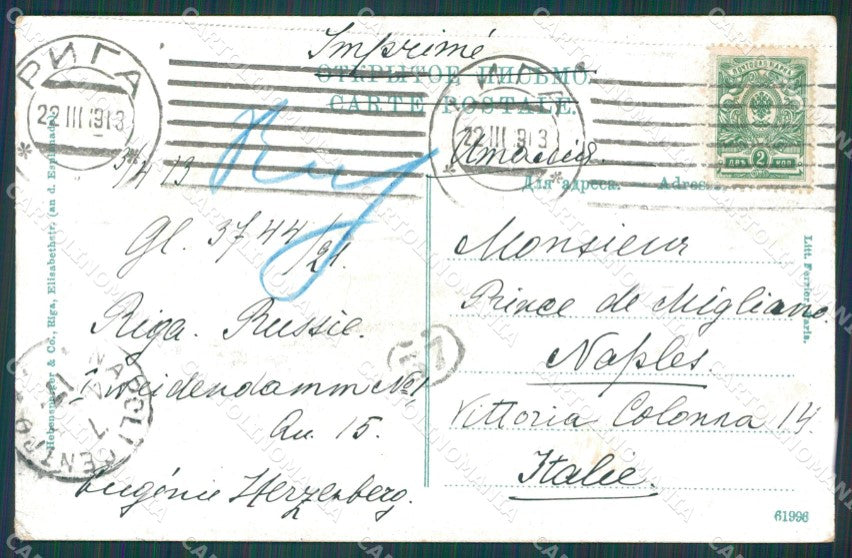 Imprimé
ОТКРЫТОЕ ПИСЬМО.
CARTE POSTALE.
РИГА
22 III 1913
РИГА
22 III 1913
ПОЧТОВАЯ МАРКА
ДВѢ 2 КОП
Италія.
Для адреса. Adresse
3/4 13
Gl. 3744/21.
Riga. Russie.
Weidendamm № 1
Qu. 15.
Eugénie Herzenberg.
Monsieur
Prince de Migliano.
Naples.
Vittoria Colonna 14
Italie.
NAPOLI CENTRO
Hebensperger & Co., Riga, Elisabethstr. (an d. Esplanade).
Litt. Ferrier Paris.
61996
CARTOLINOMANIA